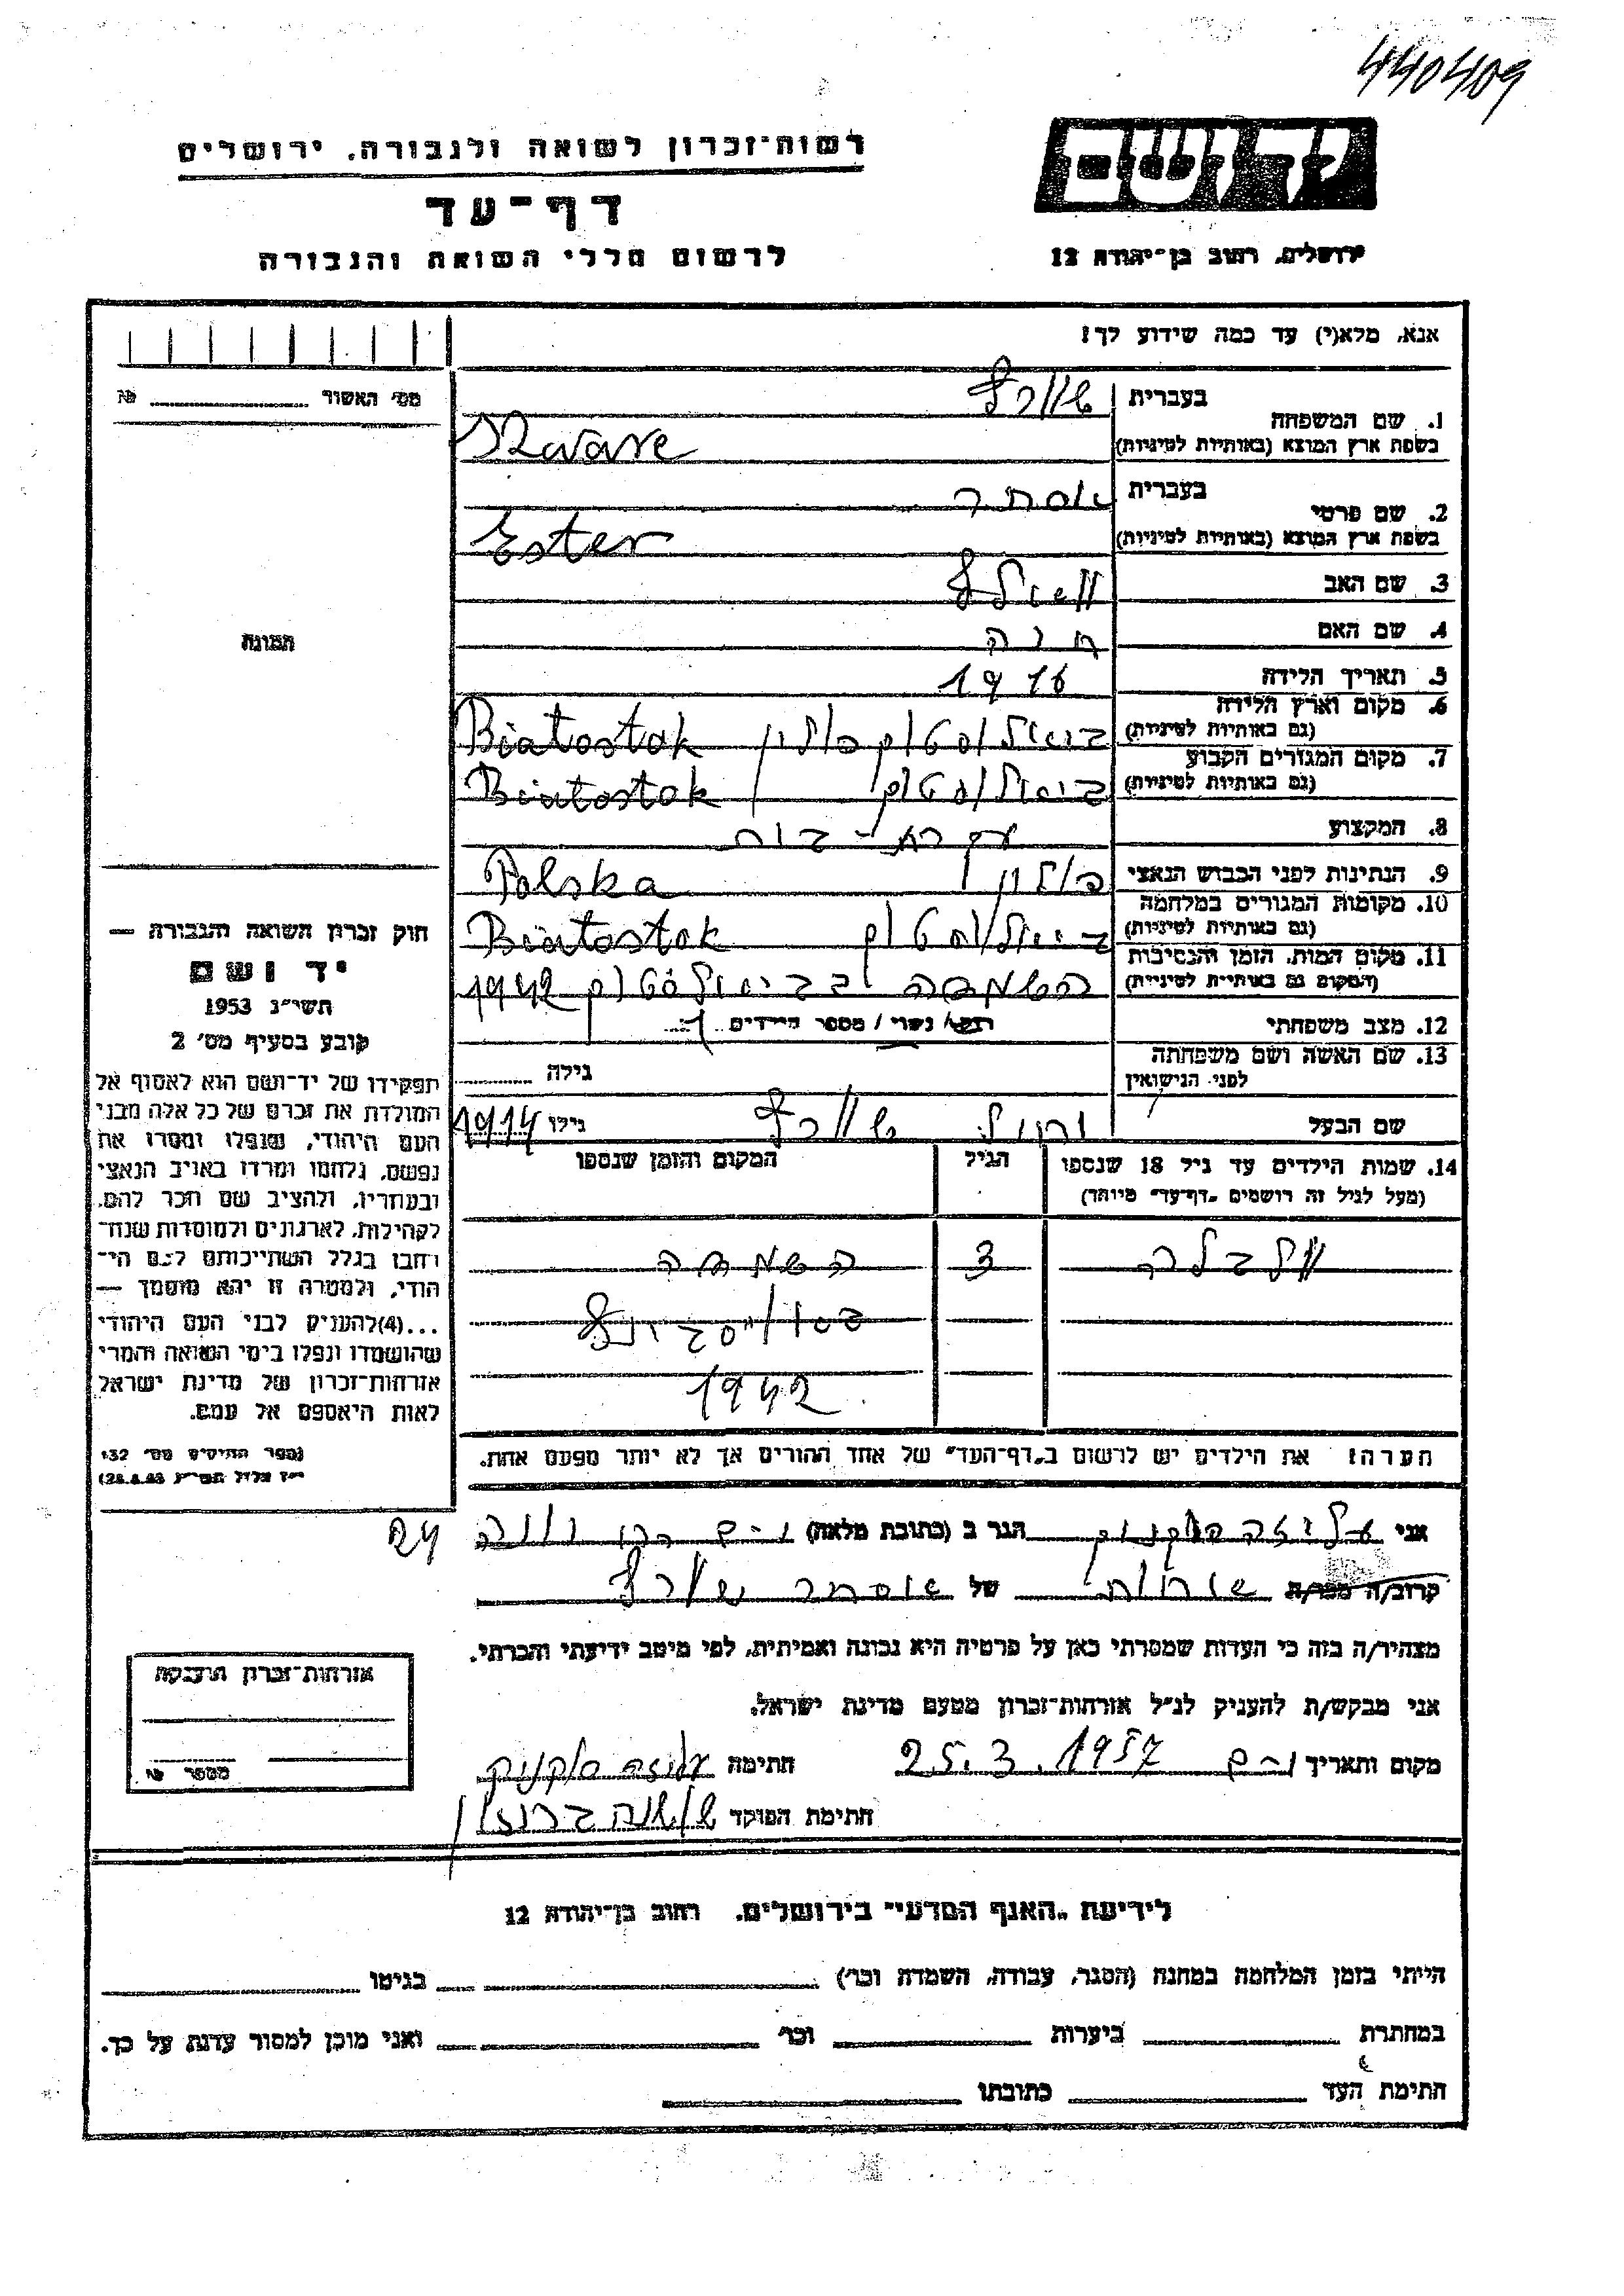 440409
יד ושם
רשות־זכרון לשואה ולגבורה, ירושלים
דף־עד
ירושלים, רחוב בן־יהודה 12
לרשום חללי השואה והגבורה
אנא, מלא(י) עד כמה שידוע לך!
מס׳ האשור № 
1. שם המשפחה
בעברית שווארץ
בשפת ארץ המוצא (באותיות לטיניות) Szwarc
2. שם פרטי
בעברית אסתר
בשפת ארץ המוצא (באותיות לטיניות) Ester
3. שם האב
4. שם האם חנה
תמונה
5. תאריך הלידה 1916
6. מקום וארץ הלידה
(גם באותיות לטיניות) ביאליסטוק פולין Biatostok
7. מקום המגורים הקבוע
(גם באותיות לטיניות) ביאליסטוק Biatostok
8. המקצוע עקרת-בית
9. הנתינות לפני הכבוש הנאצי פולין Polska
10. מקומות המגורים במלחמה
(גם באותיות לטיניות) ביאליסטוק Biatostok
11. מקום המות, הזמן והנסיבות
(המקום גם באותיות לטיניות) 1942
12. מצב משפחתי רווק / נשוי / מספר הילדים 1
13. שם האשה ושם משפחתה
לפני הנישואין גילה
שם הבעל שווארץ גילו 1914
14. שמות הילדים עד גיל 18 שנספו
(מעל לגיל זה רושמים „דף־עד” מיוחד)
הגיל
המקום והזמן שנספו
3
1942
הערה! את הילדים יש לרשום ב„דף־העד” של אחד ההורים אך לא יותר מפעם אחת.
חוק זכרון השואה והגבורה —
יד ושם
תשי״ג 1953
קובע בסעיף מס׳ 2
תפקידו של יד־ושם הוא לאסוף אל
המולדת את זכרם של כל אלה מבני
העם היהודי, שנפלו ומסרו את
נפשם, נלחמו ומרדו באויב הנאצי
ובעוזריו, ולהציב שם וזכר להם,
לקהילות, לארגונים ולמוסדות שנח־
רבו בגלל השתייכותם לעם הי־
הודי, ולמטרה זו יהא מוסמך —
...(4)להעניק לבני העם היהודי
שהושמדו ונפלו בימי השואה והמרי
אזרחות־זכרון של מדינת ישראל
לאות היאספם אל עמם.
(ספר החוקים מס׳ 132
י״ז אלול תשי״ג 28.8.53)
אני עליזה הגר ב (כתובת מלאה)
קרוב/ה מכר/ה של אסתר שווארץ
מצהיר/ה בזה כי העדות שמסרתי כאן על פרטיה היא נכונה ואמיתית, לפי מיטב ידיעתי והכרתי.
אני מבקש/ת להעניק לנ״ל אזרחות־זכרון מטעם מדינת ישראל.
מקום ותאריך 25.3.1957 חתימה
חתימת הפוקד שושנה
אזרחות־זכרון הוענקה
מספר №
לידיעת „האגף המדעי” בירושלים, רחוב בן־יהודה 12
הייתי בזמן המלחמה במחנה (הסגר, עבודה, השמדה וכו׳) בגיטו
במחתרת ביערות וכו׳ ואני מוכן למסור עדות על כך.
חתימת העד כתובתו